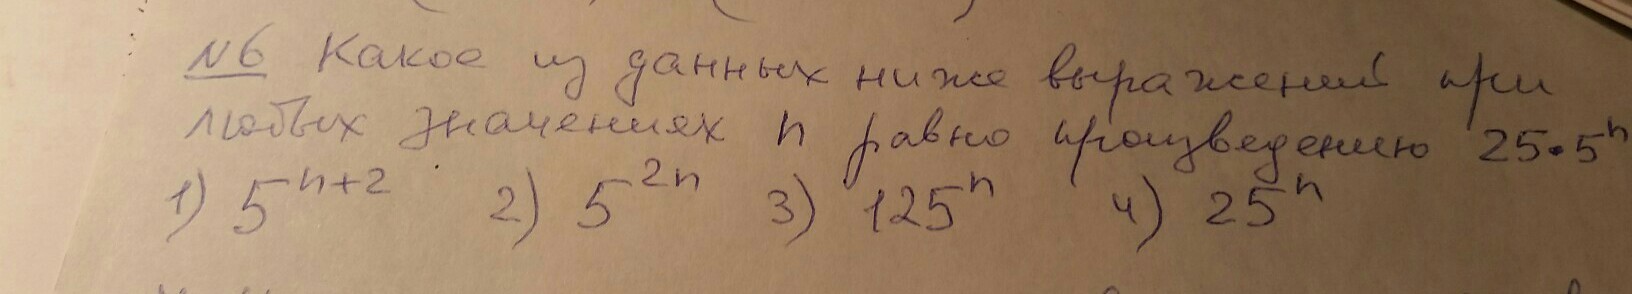 №6 Какое из данных ниже выражений при
любых значениях n равно произведению 25•5ⁿ
1) 5ⁿ⁺² 2) 5²ⁿ 3) 125ⁿ 4) 25ⁿ